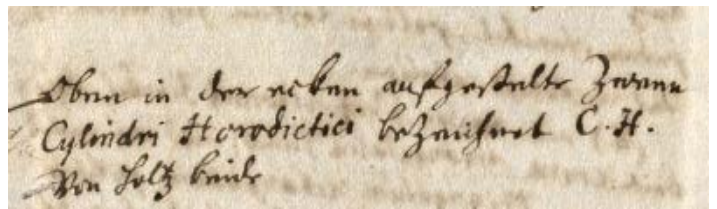 Oben in der ecken aufgestelte Zween
Cylindri Horodictici bezeichnet C. H.
Von holtz beide